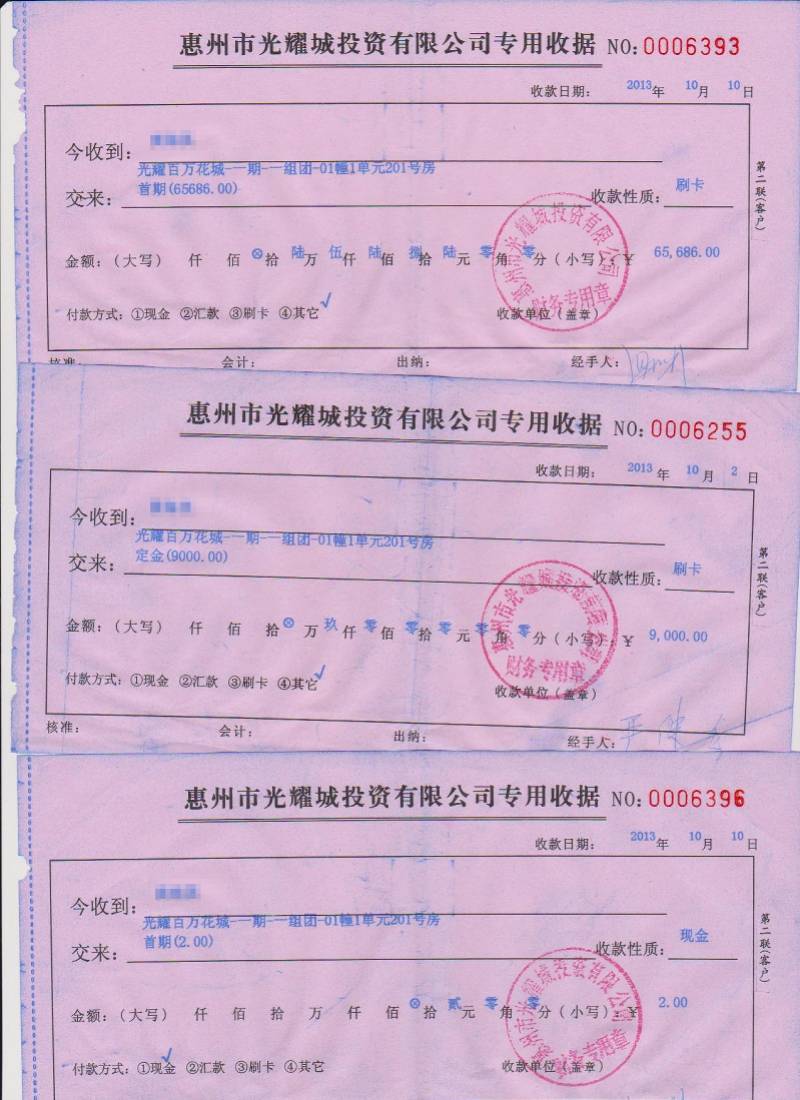 惠州市光耀城投资有限公司专用收据 NO:0006393
收款日期: 2013年 10月 10日
今收到:
光耀百万花城-一期-一组团-01幢1单元201号房
交来: 首期(65686.00) 收款性质: 刷卡
第二联(客户)
金额:(大写) 仟 佰⊗拾陆万伍仟陆佰捌拾陆元零角零分(小写):¥ 65,686.00
付款方式:①现金 ②汇款 ③刷卡 ④其它√ 收款单位(盖章)
惠州市光耀城投资有限公司
财务专用章
核准: 会计: 出纳: 经手人:
惠州市光耀城投资有限公司专用收据 NO:0006255
收款日期: 2013年 10月 2日
今收到:
光耀百万花城-一期-一组团-01幢1单元201号房
交来: 定金(9000.00) 收款性质: 刷卡
第二联(客户)
金额:(大写) 仟 佰 拾⊗万玖仟零佰零拾零元零角零分(小写):¥ 9,000.00
付款方式:①现金 ②汇款 ③刷卡 ④其它√ 收款单位(盖章)
惠州市光耀城投资有限公司
财务专用章
核准: 会计: 出纳: 经手人:
惠州市光耀城投资有限公司专用收据 NO:0006396
收款日期: 2013年 10月 10日
今收到:
光耀百万花城-一期-一组团-01幢1单元201号房
交来: 首期(2.00) 收款性质: 现金
第二联(客户)
金额:(大写) 仟 佰 拾 万 仟 佰⊗拾贰元零角零分(小写):¥ 2.00
付款方式:①现金√ ②汇款 ③刷卡 ④其它 收款单位(盖章)
惠州市光耀城投资有限公司
财务专用章